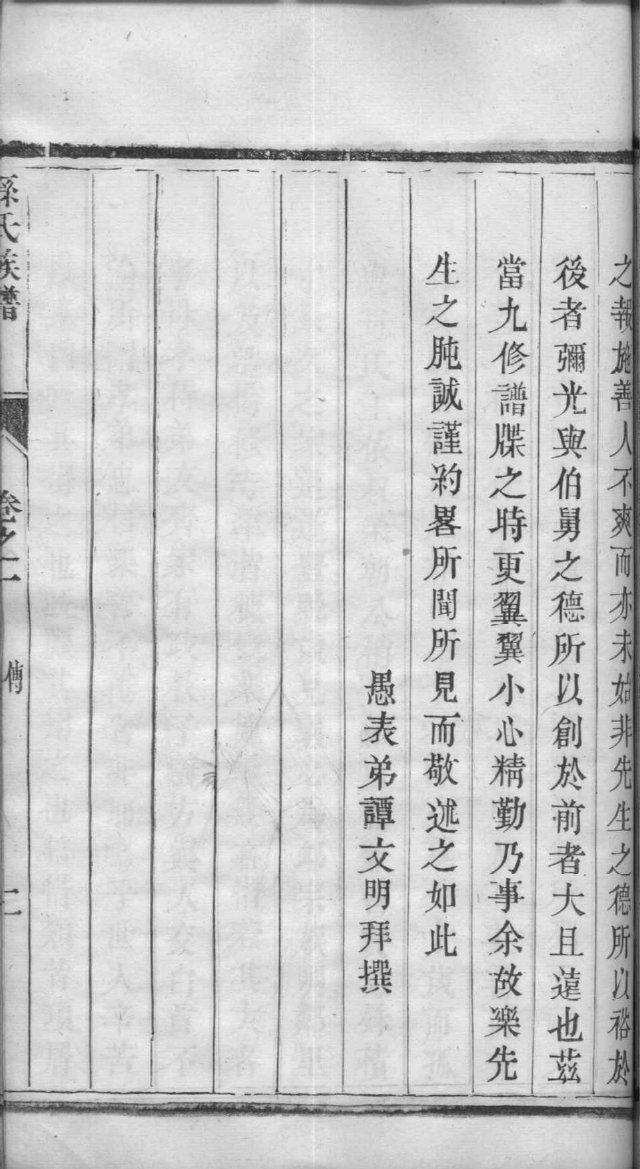 之報施善人不爽而亦未始非先生之德所以裕於
後者彌光與伯舅之德所以創於前者大且遠也茲
當九修譜牒之時更翼翼小心精勤乃事余故樂先
生之肫誠謹約畧所聞所見而敬述之如此
愚表弟譚文明拜撰
孫氏族譜
卷之一
傳